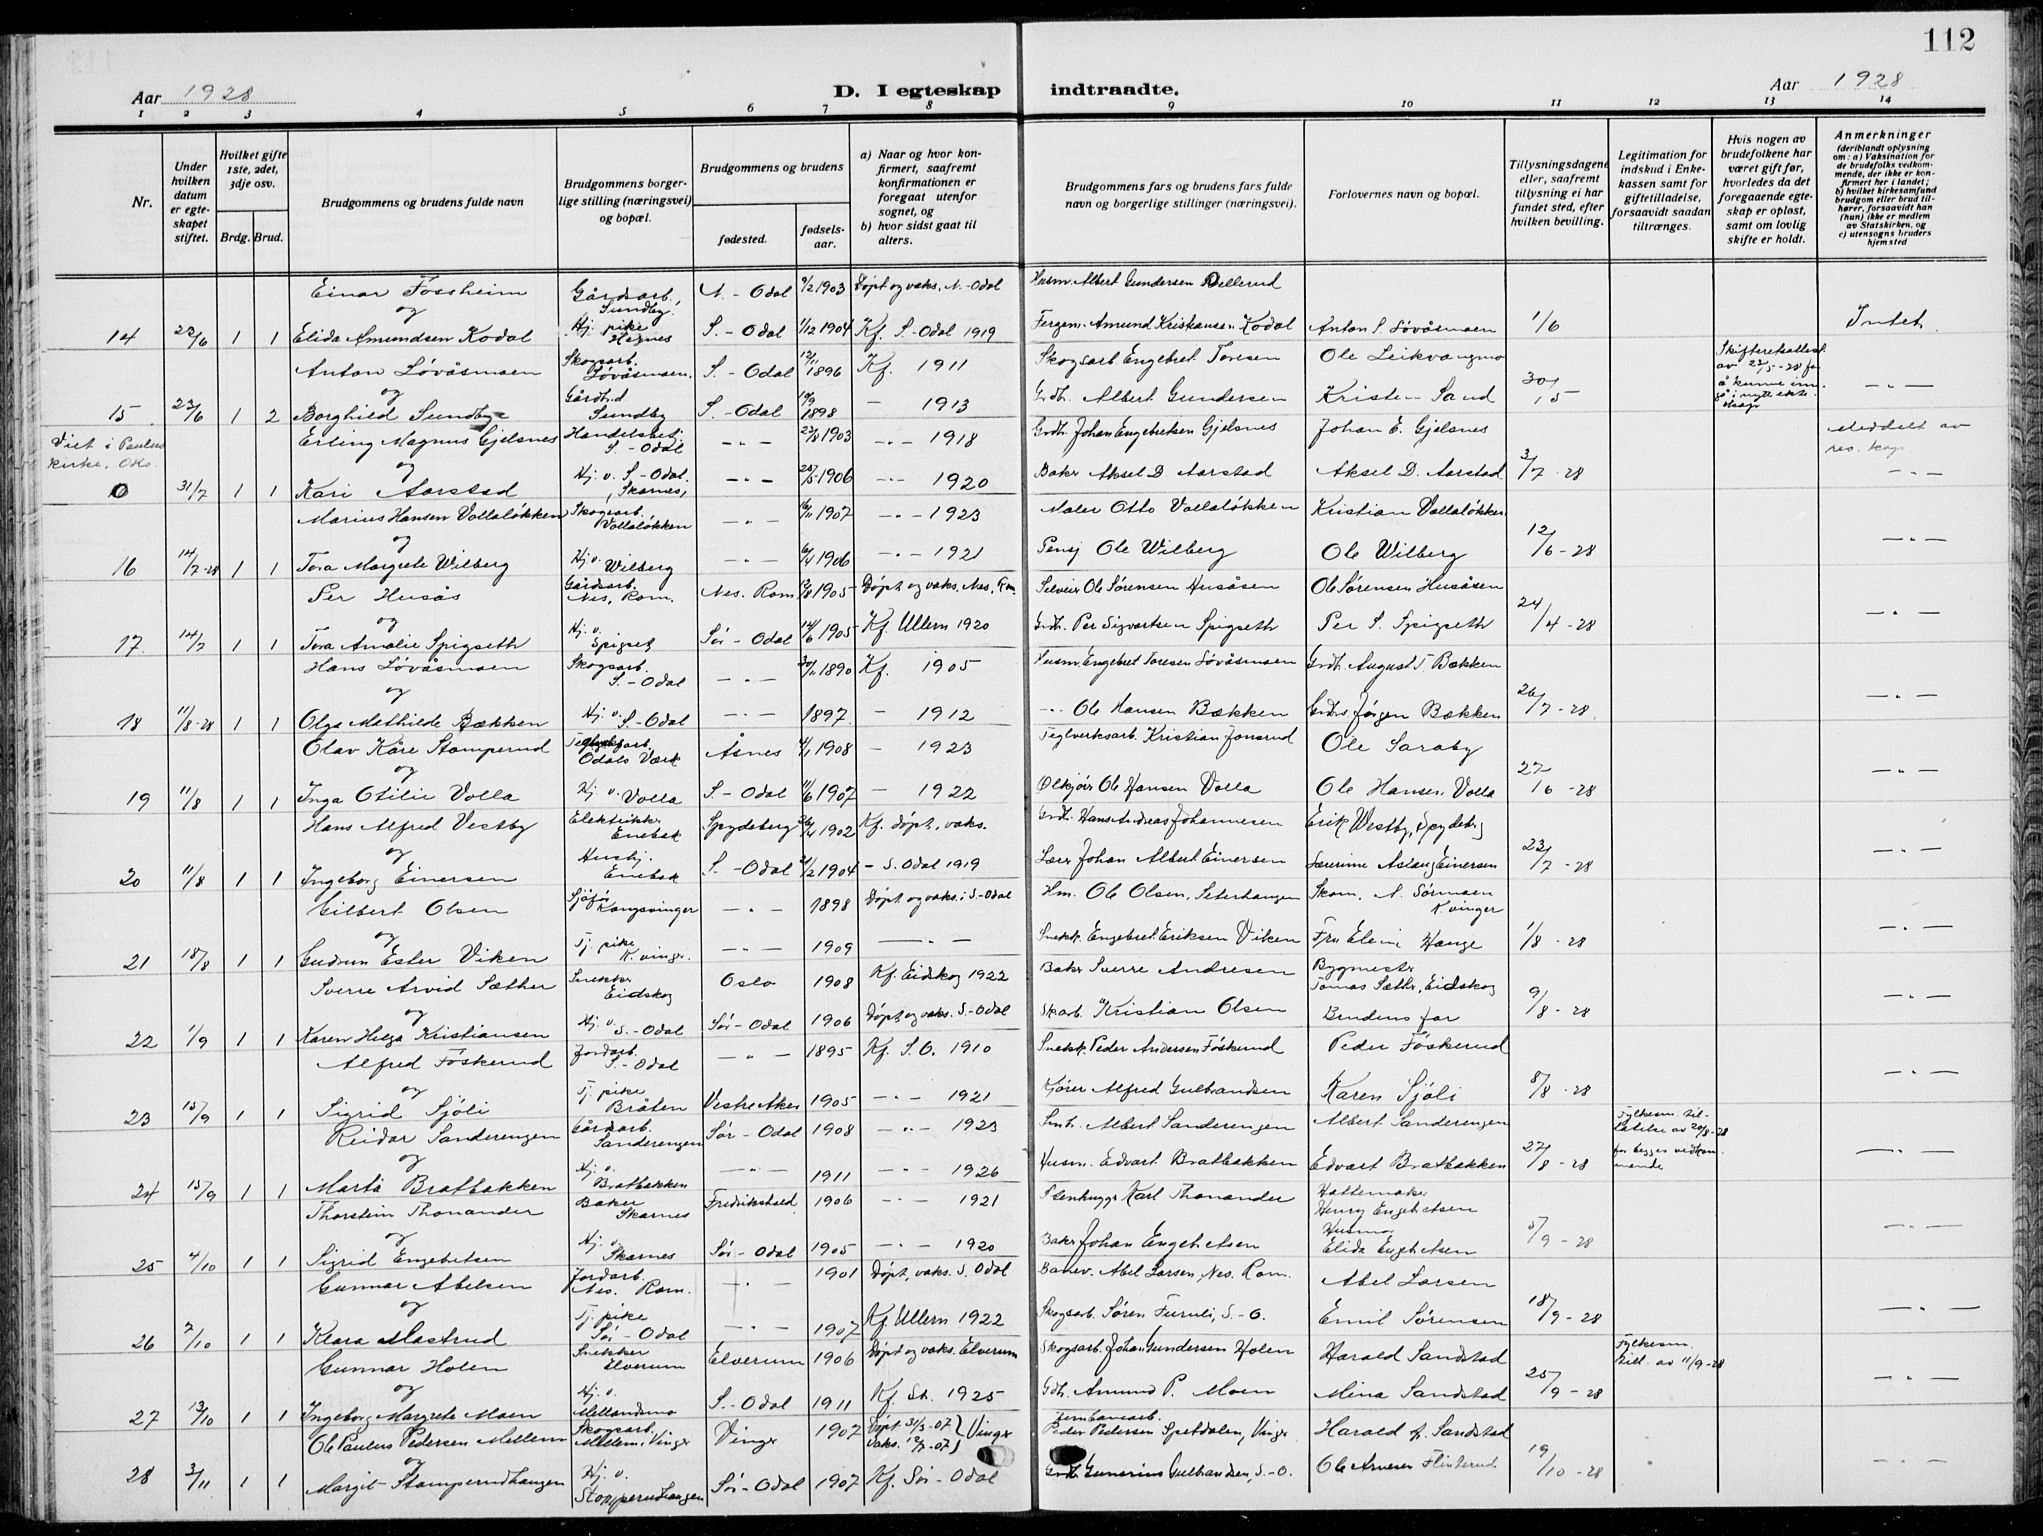 112
Aar 1928 D. I egteskap indtraadte. Aar 1928
1 2 3 4 5 6 7 8 9 10 11 12 13 14
Nr.
Under hvilken datum er egteskapet stiftet.
Hvilket gifte 1ste, 2det, 3dje osv.
Brdg. Brud.
Brudgommens og brudens fulde navn
Brudgommens borgerlige stilling (næringsvei) og bopæl.
Brudgommens og brudens
fødested.
fødselsaar.
a) Naar og hvor konfirmert, saafremt konfirmationen er foregaat utenfor sognet, og
b) hvor sidst gaat til alters.
Brudgommens fars og brudens fars fulde navn og borgerlige stillinger (næringsvei).
Forlovernes navn og bopæl.
Tillysningsdagene eller, saafremt tillysning ei har fundet sted, efter hvilken bevilling.
Legitimation for indskud i Enkekassen samt for giftetilladelse, forsaavidt saadan tiltrænges.
Hvis nogen av brudefolkene har været gift før, hvorledes da det foregaaende egteskap er opløst, samt om lovlig skifte er holdt.
Anmerkninger (deriblandt oplysning om: a) Vaksination for de brudefolks vedkommende, der ikke er konfirmert her i landet; b) hvilket kirkesamfund brudgom eller brud tilhører, forsaavidt han (hun) ikke er medlem av Statskirken, og c) utensogns bruders hjemsted
Einar Fossheim Gårdsarb., Sundby. N.-Odal 9/2 1903 Døpt og vaks. N.-Odal Husm. Albert Gundersen Ollerud
og
14 23/6 1 1 Elida Amundsen Kodal Hj. pike Hernes S.-Odal 1/12 1904 Kf. S.-Odal 1919 Fergem. Amund Kristiansen Kodal Anton S. Løvåsmoen 1/6 Intet
Anton Løvåsmoen Skogsarb. Løvåsmoen. S.-Odal 12/11 1896 Kf. 1911 Skogsarb. Engebret Toresen Ole Leikvangmo Skifteretsattest av 22/5-28 for å kunne inngå i nytt ekteskap
og
15 23/6 1 2 Borghild Sundbye Sundby S.-Odal 10/9 1898 - 1913 Grdb. Albert Gundersen Kristen Sand 30/5 -"-
Viet i Paulus kirke, Oslo.
Erling Magnus Gjelsnes Handelsbet. S.-Odal -"- 23/8 1903 -"- 1918 Grdb. Johan Engebretsen Gjelsnes Johan E. Gjelsnes Meddelt av res. kap.
og
0 31/7 1 1 Kari Aarstad Hj. v. S.-Odal, Skarnes, -"- 25/5 1906 -"- 1920 Baker Aksel D. Aarstad Aksel D. Aarstad 3/7-28 -"-
Marius Hansen Vollaløkken Skogsarb. Vollaløkken -"- 16/11 1907 -"- 1923 Maler Otto Vollaløkken Kristian Vollaløkken
og
16 14/7-28 1 1 Tora Margrete Wilberg Hj. v. Wilberg -"- 6/4 1906 -"- 1921 Pensj. Ole Wilberg Ole Wilberg 12/6-28 -"-
Per Husås Gårdsarb. Nes, Rom. Nes. Rom 12/8 1905 Døpt og vaks. Nes, Rom. Selveier Ole Sørensen Husåsen Ole Sørensen Husåsen
og
17 14/7 1 1 Tora Amalie Spigseth Hj. v. Spigset Sør-Odal 14/6 1905 Kf. Ullern 1920 Grdb. Per Sigvartsen Spigseth Per S. Spigseth 24/4-28 -"-
Hans Løvåsmoen Skogsarb. S.-Odal -"- 30/11 1890 Kf. 1905 Husm. Engebret Toresen Løvåsmoen Grdb. August T. Bækken
og
18 11/8-28 1 1 Olga Mathilde Bækken Hj. v. S.-Odal -"- 1897 - 1912 -"- Ole Hansen Bækken Jørgen Bækken 26/7-28 -"-
Olav Kåre Stomperud Odals Værk Åsnes 4/1 1908 - 1923 Teglverksarb. Kristian Jonsrud Ole Saraby
og
19 11/8 1 1 Inga Otilie Volla Hj. v. Volla S.-Odal 11/6 1907 - 1922 Ølkjører Ole Hansen Volla Ole Hansen Volla 27/6-28 -"-
Hans Alfred Vestby Elektriker Enebak Spydeberg 26/4 1902 Kf. døpt, vaks. Grdb. Hans Andreas Johannesen Erik Westby, Spydeberg
og
20 11/8 1 1 Ingeborg Einersen Hushj. Enebak S.-Odal 21/2 1904 - S. Odal 1919 Lærer Johan Albert Einersen Lærerinne Aslaug Einersen 23/7-28 -"-
Gilbert Olsen Sjåfør Kongsvinger -"- 1898 Døpt og vaks. i S.-Odal Hm. Ole Olsen, Seterhangen Skom. N. Sørmoen K.vinger
og
21 18/8 1 1 Gudrun Ester Viken Tj. pike K.vinger -"- 1909 -"- Snekk. Engebret Eriksen Viken Fru Elevine Hauge 1/8-28 -"-
Sverre Arvid Sæther Snekker Eidskog Oslo 1908 Kf. Eidskog 1922 Baker Sverre Andresen Bygmester Tomas Sæther, Eidskog
og
22 1/9 1 1 Karen Helga Kristiansen Hj. v. S.-Odal Sør-Odal 1906 Døpt og vaks. S.-Odal Skarb. Kristian Olsen Brudens far 9/8-28 -"-
Alfred Føskerud Jordarb. S.-Odal -"- 1895 Kf. S.O. 1910 Snekk. Peder Andersen Føskerud Peder Føskerud
og
23 15/9 1 1 Sigrid Sjøli Tj. pike Bråten Vestre Aker 1905 -"- 1921 Kjører Alfred Gulbrandsen Karen Sjøli 8/8-28 -"-
Reidar Sanderengen Gårdsarb. Sanderengen Sør-Odal 1908 -"- 1923 Smb. Albert Sanderengen Albert Sanderengen Fylkesm. tillatelse av 20/8-28 for begges vedkommende
og
24 15/9 1 1 Marta Bratbakken Hj. v. Bratbakken -"- 1911 -"- 1926 Husm. Edvart Bratbakken Edvart Bratbakken 27/8-28 -"-
Thorstein Thonander Baker Skarnes Fredrikstad 1906 -"- 1921 Stenhugger Karl Thonander Hattemaker Henry Engebretsen
og
25 4/10 1 1 Sigrid Engebretsen Hj. v. Skarnes Sør-Odal 1905 -"- 1920 Baker Johan Engebretsen Husmor Elida Engebretsen 5/9-28 -"-
Gunnar Abelsen Jordarb. Nes. Rom. -"- 1901 Døpt, vaks. S. Odal Banev. Abel Larsen, Nes. Rom. Abel Larsen
og
26 7/10 1 1 Klara Mastrud Tj. pike Sør-Odal -"- 1907 Kf. Ullern 1922 Skogsarb. Søren Furuli, S.-O. Emil Sørensen 18/9-28 -"-
Gunnar Holen Snekker Elverum Elverum 1906 Døpt og vaks. Elverum Skogsarb. Johan Gundersen Holen Harald Sandstad Fylkesm. till. av 11/9-28
og
27 13/10 1 1 Ingeborg Margrete Moen Hj. v. S.-Odal 1911 Kf. Str. 1925 Gdb. Amund P. Moen Mina Sandstad 25/9-28 -"-
Ole Paulus Pedersen Mellem Skogsarb. Mellem, Vinger Vinger 1907 Døpt 31/3-07 vaks. 12/7-07 } Vinger Jernbanearb. Peder Pedersen Spetdalen, Vinger Harald Sandstad
og
28 3/11 1 1 Margit Stomperudhaugen Hj. v. Stomperudhaugen Sør-Odal 1907 Kf. Sør-Odal Grdb. Gunerius Gulbrandsen, S.-O. Ole Arnesen Flinterud 19/10-28 -"-